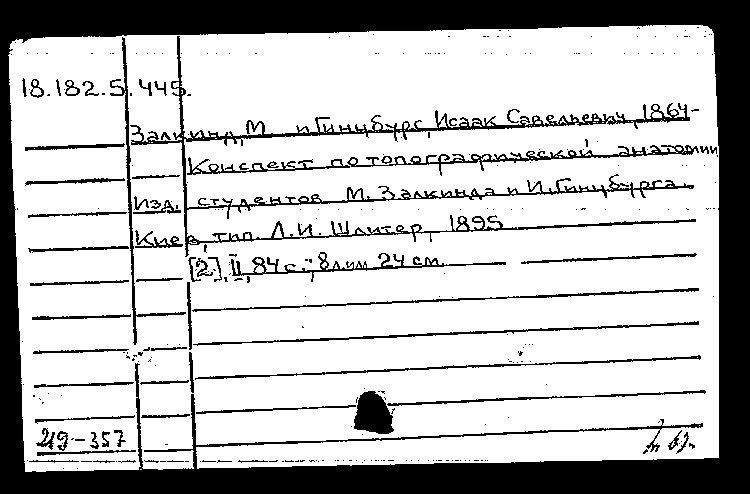 18.182.5.445.
Залкинд, М. и Гинцбург, Исаак Савельевич, 1864-
Конспект по топографической анатомии
Изд. студентов М. Залкинда и И. Гинцбурга.
Киев, тип. Л.И. Шлитер, 1895
[2], II, 84 с.; 24 см.
И9-357